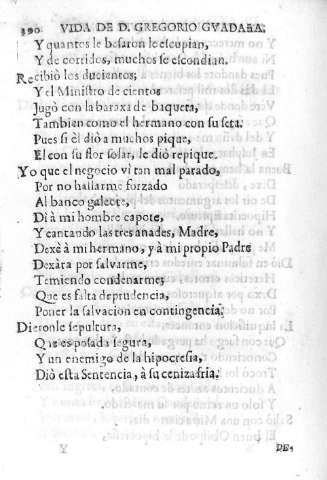 390 VIDA DE D. GREGORIO GVADAÑA.
Y quantos le besaron le escupian,
Y de corridos, muchos se escondian.
Recibiò los ducientos;
Y el Ministro de cientos
Jugò con la baraxa de baqueta,
Tambien como el hermano con su seta.
Pues si èl diò a muchos pique,
El con su flor solar, le diò repique.
Yo que el negocio vì tan mal parado,
Por no hallarme forzado
Al banco galeote,
Di à mi hombre capote,
Y cantando las tres anades, Madre,
Dexè à mi hermano, y à mi propio Padre
Dexàra por salvarme,
Temiendo condenarme;
Que es falta de prudencia,
Poner la salvacion en contingencia.
Dieronle sepultura,
Que es posada segura,
Y un enemigo de la hipocresia,
Diò esta Sentencia, à su ceniza fria.
Y DE,